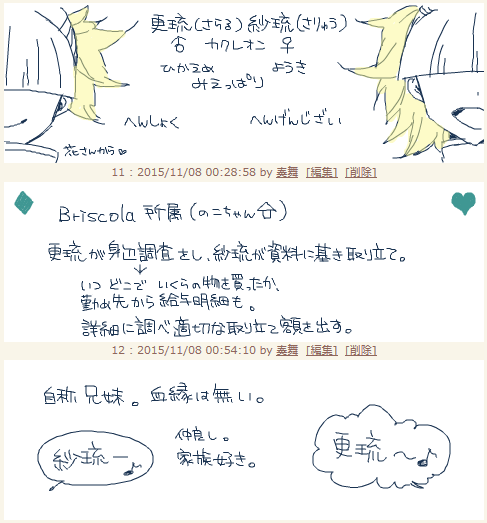 更琉(さらる) 紗琉(さりゅう)
♂ カクレオン ♀
ひかえめ ようき
みえっぱり
へんしょく へんげんじざい
花さんから♥
11 : 2015/11/08 00:28:58 by 奏舞 [編集] [削除]
Briscola 所属(のこちゃん宅)
更琉が身辺調査をし、紗琉が資料に基き取り立て。
↓
いつ どこで いくらの物を買ったか、
勤め先から給与明細も。
詳細に調べ適切な取り立て額を出す。
12 : 2015/11/08 00:54:10 by 奏舞 [編集] [削除]
自称 兄妹。血縁は無い。
紗琉ー♪
仲良し。
家族好き。
更琉〜♪